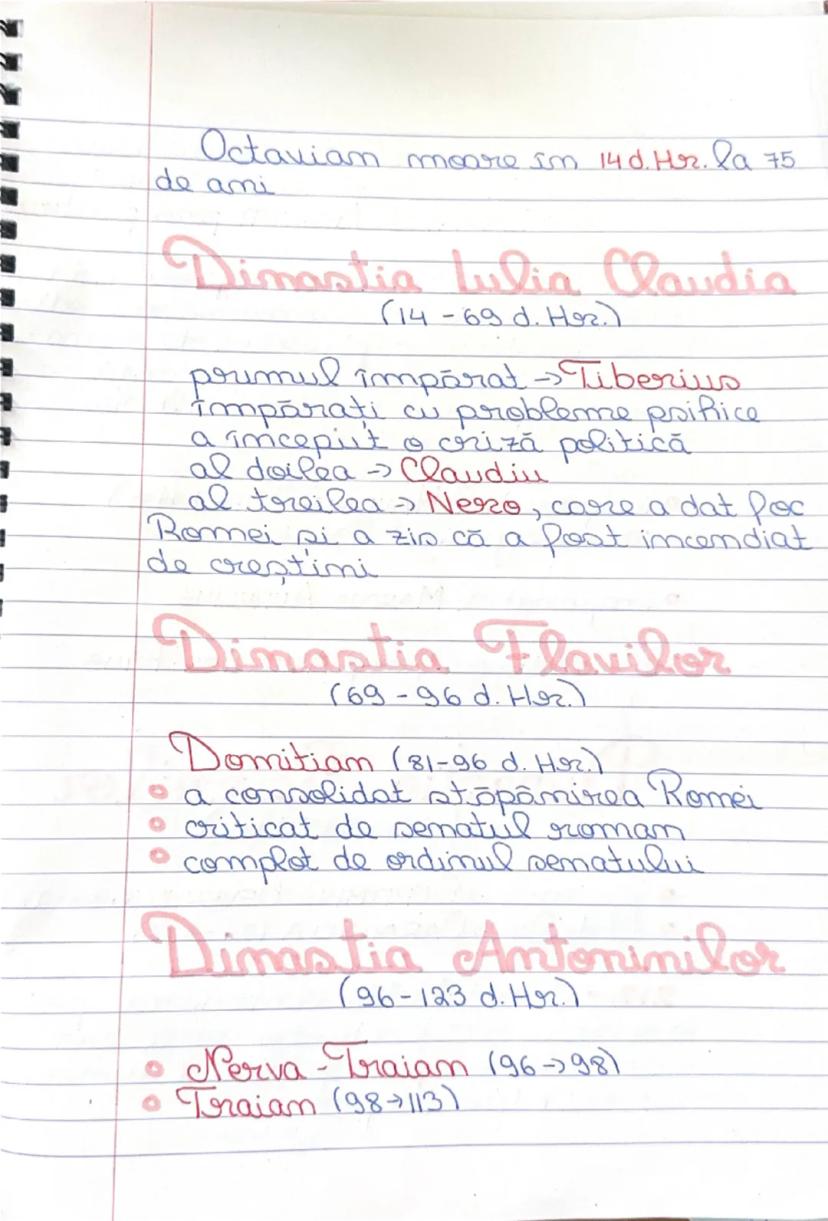 Octavian moare în 14 d.Hr. la 75
de ani
Dinastia Iulia Claudia
(14 - 69 d. Hr.)
prumul împărat -> Tiberius
împărați cu probleme psihice
a început o criză politică
al doilea -> Claudiu
al treilea -> Nero, care a dat foc
Romei și a zis că a fost incendiat
de creștini
Dinastia Flavilor
(69 - 96 d. Hr.)
Domitian (81-96 d. Hr.)
• a consolidat stăpânirea Romei
• criticat de senatul roman
• complot de ordinul senatului
Dinastia Antoninilor
(96-123 d.Hr.)
• Nerva - Traian (96->98)
• Traian (98->113)